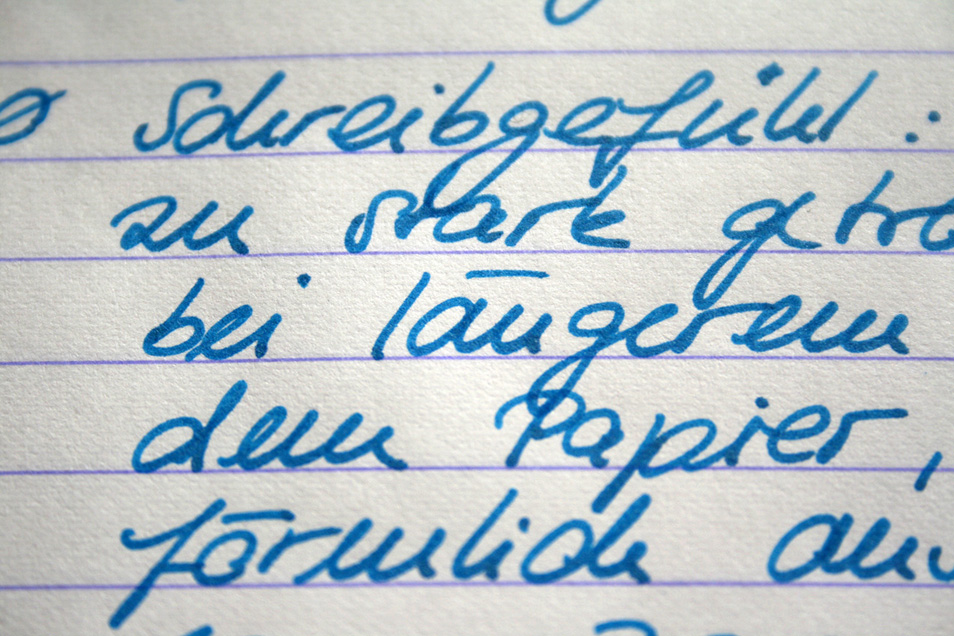 Ø Schreibgefühl:
zu stark
bei längerem
dem Papier,
förmlich